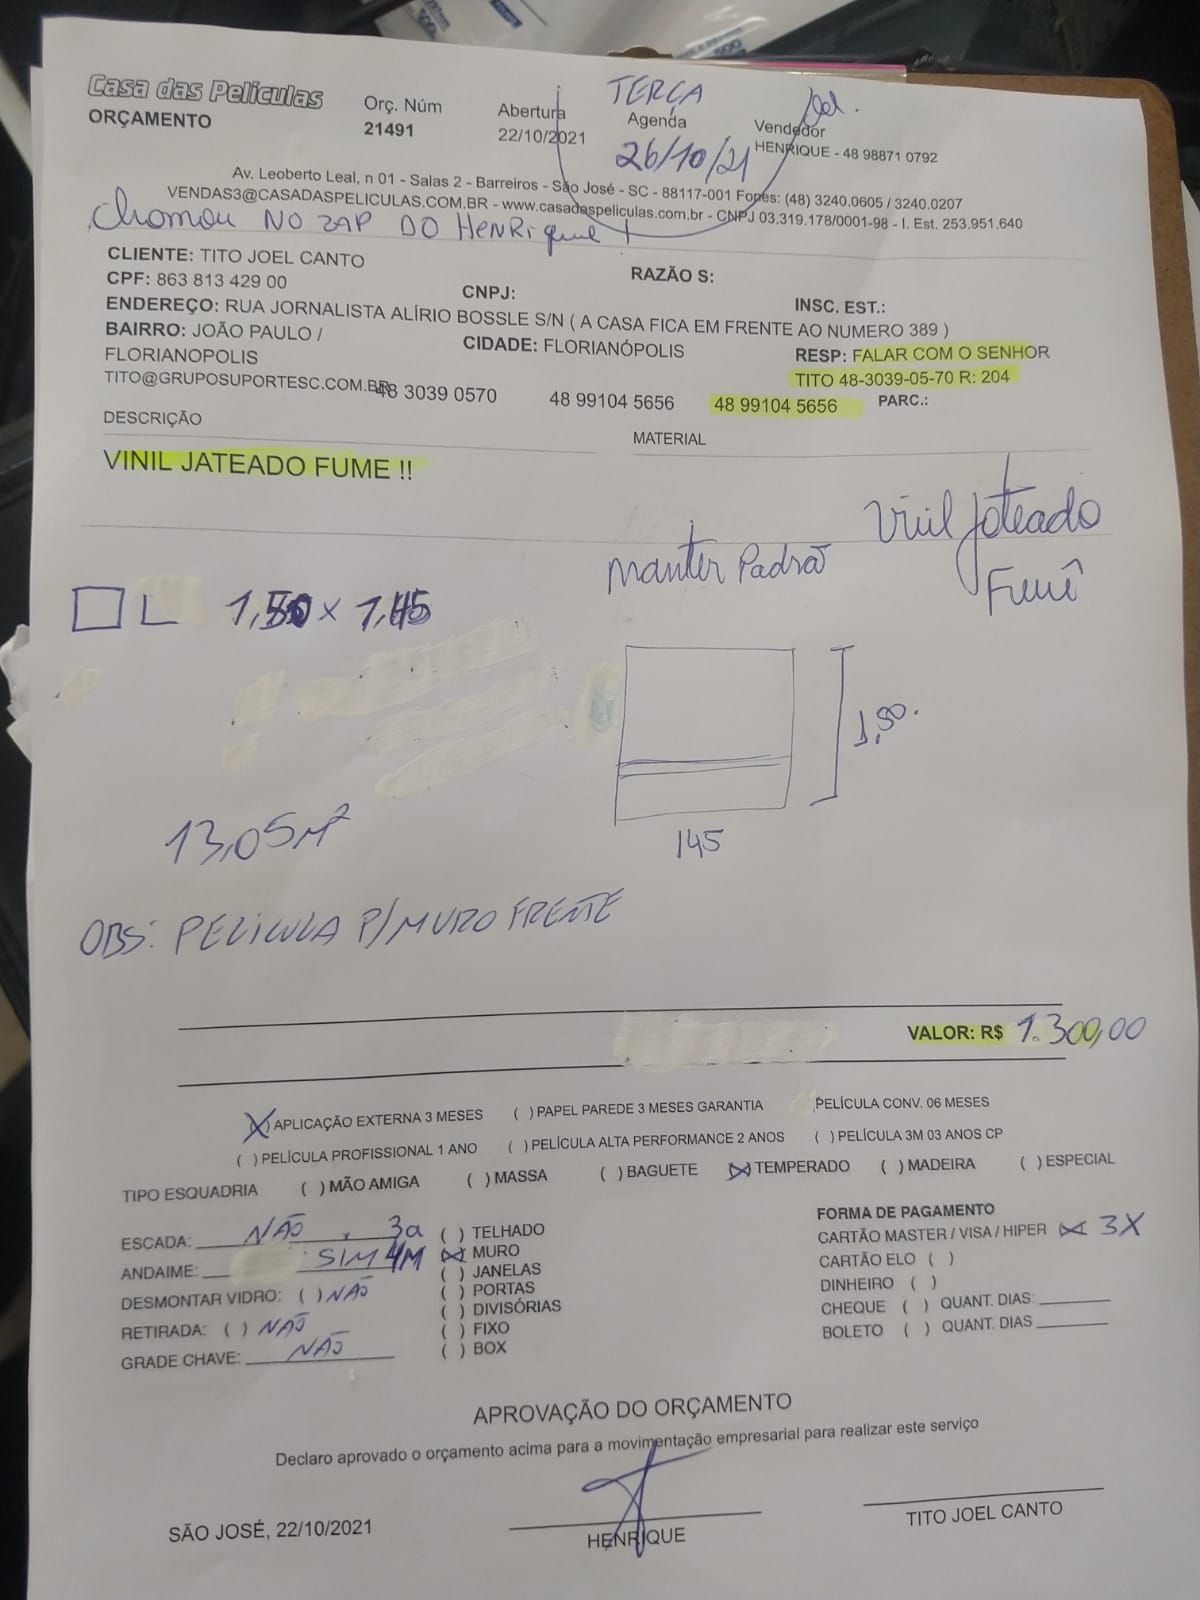 Casa das Películas
ORÇAMENTO
Orç. Núm
21491
Abertura
22/10/2021
TERÇA
Agenda
26/10/21
Joel.
Vendedor
HENRIQUE - 48 98871 0792
Av. Leoberto Leal, n 01 - Salas 2 - Barreiros - São José - SC - 88117-001 Fones: (48) 3240.0605 / 3240.0207
VENDAS3@CASADASPELICULAS.COM.BR - www.casadaspeliculas.com.br - CNPJ 03.319.178/0001-98 - I. Est. 253.951.640
chamou NO ZAP DO HENRique
CLIENTE: TITO JOEL CANTO
RAZÃO S:
CPF: 863 813 429 00
CNPJ:
INSC. EST.:
ENDEREÇO: RUA JORNALISTA ALÍRIO BOSSLE S/N ( A CASA FICA EM FRENTE AO NUMERO 389 )
BAIRRO: JOÃO PAULO /
FLORIANOPOLIS
CIDADE: FLORIANÓPOLIS
RESP: FALAR COM O SENHOR
TITO 48-3039-05-70 R: 204
TITO@GRUPOSUPORTESC.COM.BR
48 3039 0570
48 99104 5656
48 99104 5656
PARC.:
DESCRIÇÃO
MATERIAL
VINIL JATEADO FUME !!
Vinil Jateado
Fumê
Manter Padrão
L 1,50 x 1,45
1,50.
145
13,05M²
OBS: PELÍCULA P/ MURO FRENTE
VALOR: R$ 1.300,00
(X) APLICAÇÃO EXTERNA 3 MESES ( ) PAPEL PAREDE 3 MESES GARANTIA PELÍCULA CONV. 06 MESES
( ) PELÍCULA PROFISSIONAL 1 ANO ( ) PELÍCULA ALTA PERFORMANCE 2 ANOS ( ) PELÍCULA 3M 03 ANOS CP
TIPO ESQUADRIA ( ) MÃO AMIGA ( ) MASSA ( ) BAGUETE (X) TEMPERADO ( ) MADEIRA ( ) ESPECIAL
ESCADA: NÃO . 3a
ANDAIME: SIM 4M
DESMONTAR VIDRO: ( ) NÃO
RETIRADA: ( ) NÃO
GRADE CHAVE: NÃO
( ) TELHADO
(X) MURO
( ) JANELAS
( ) PORTAS
( ) DIVISÓRIAS
( ) FIXO
( ) BOX
FORMA DE PAGAMENTO
CARTÃO MASTER / VISA / HIPER (X) 3X
CARTÃO ELO ( )
DINHEIRO ( )
CHEQUE ( ) QUANT. DIAS:
BOLETO ( ) QUANT. DIAS
APROVAÇÃO DO ORÇAMENTO
Declaro aprovado o orçamento acima para a movimentação empresarial para realizar este serviço
SÃO JOSÉ, 22/10/2021
HENRIQUE
TITO JOEL CANTO